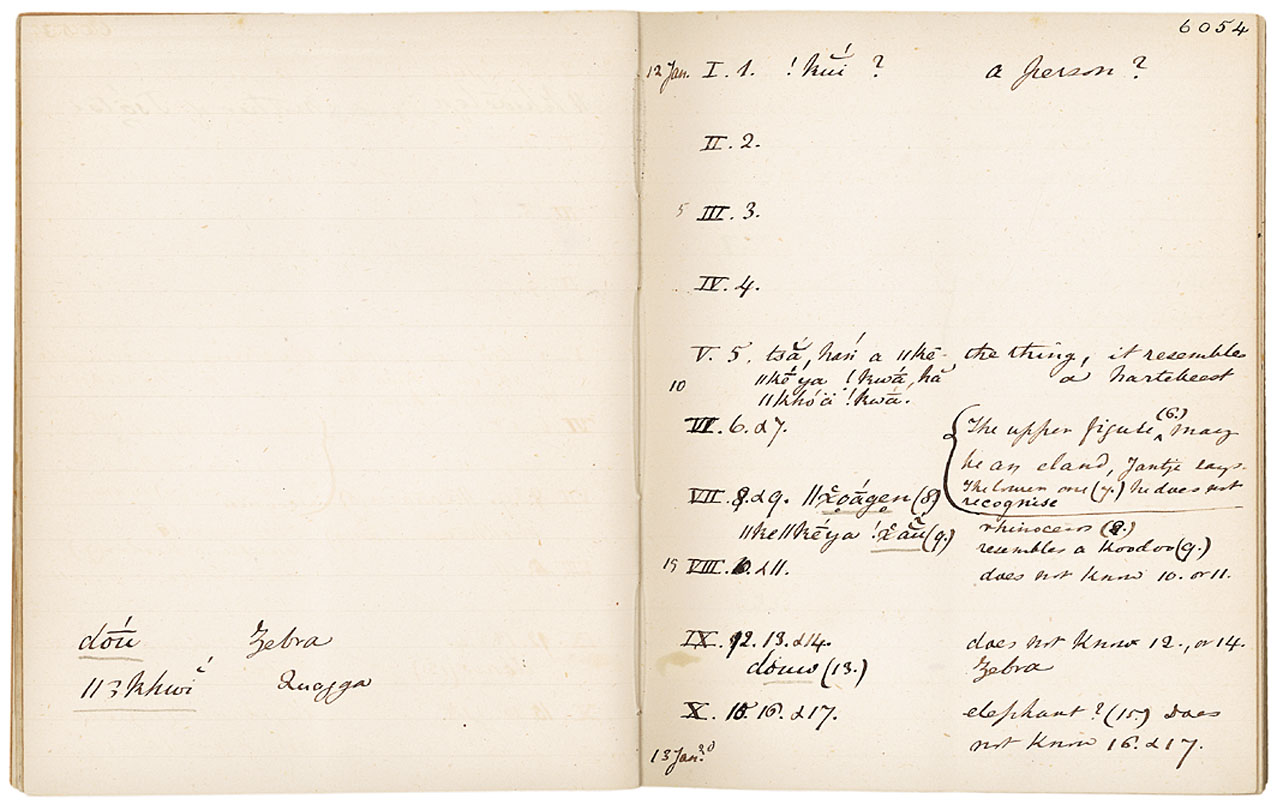 dṓū Zebra
ǁ3 khwí Quagga
6054
12 Jan. I. 1. !kŭí ? a person ?
II. 2.
5 III. 3.
IV. 4.
V. 5. tsá̆, haṅ́ a ǁkē- the thing, it resembles
10 ǁkḗya !kwā́, hă a hartebeest
ǁkhóä !kwā́.
VI. 6. & 7. The upper figure (6.) may
be an eland, Jantje says.
The lower one (7.) he does not
recognise
VII. 8. & 9. ǁx̣̆oā́gen (8)
rhinoceros (8.)
ǁkeǁkéya !x̆aū̆ (9.) resembles a Koodoo (9.)
15 VIII. 10. & 11. does not know 10. or 11.
IX. 12. 13. & 14. does not know 12., or 14.
dóuw (13.) Zebra
X. 15. 16. & 17. elephant ? (15.) Does
not know 16. & 17.
13 Jan.